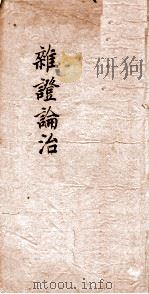 雜證論治
www.mtoou.info